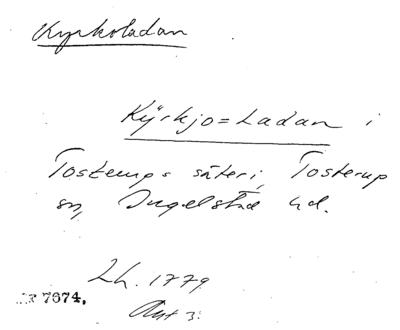 Kyrkoladan
Kÿrkjo=Ladan i
Tosterups säteri, Tosterup
sn, Ingelstad hd.
Lh. 1779
7674.
Akt 3.